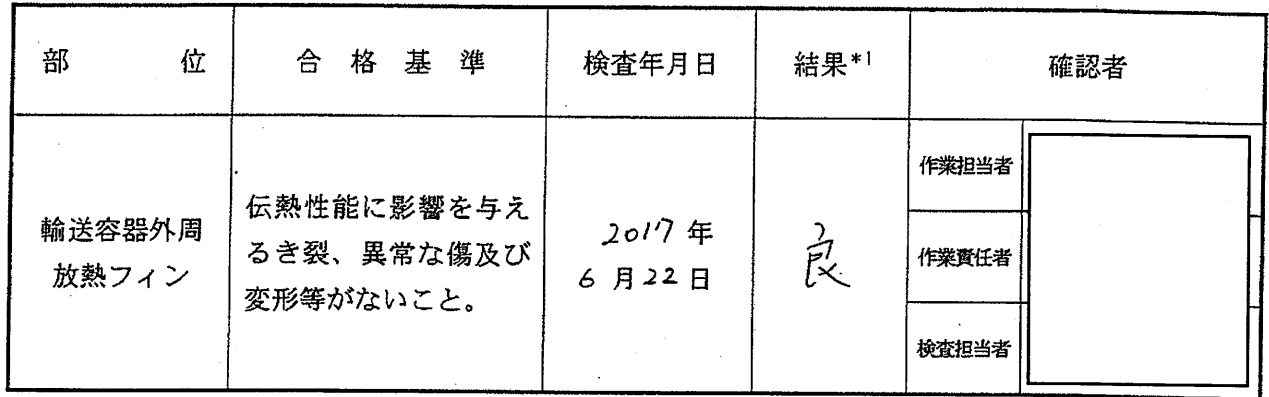 部 位 合 格 基 準 検査年月日 結果*1 確認者
輸送容器外周
放熱フィン
伝熱性能に影響を与え
るき裂、異常な傷及び
変形等がないこと。
2017年
6月22日
良
作業担当者
作業責任者
検査担当者